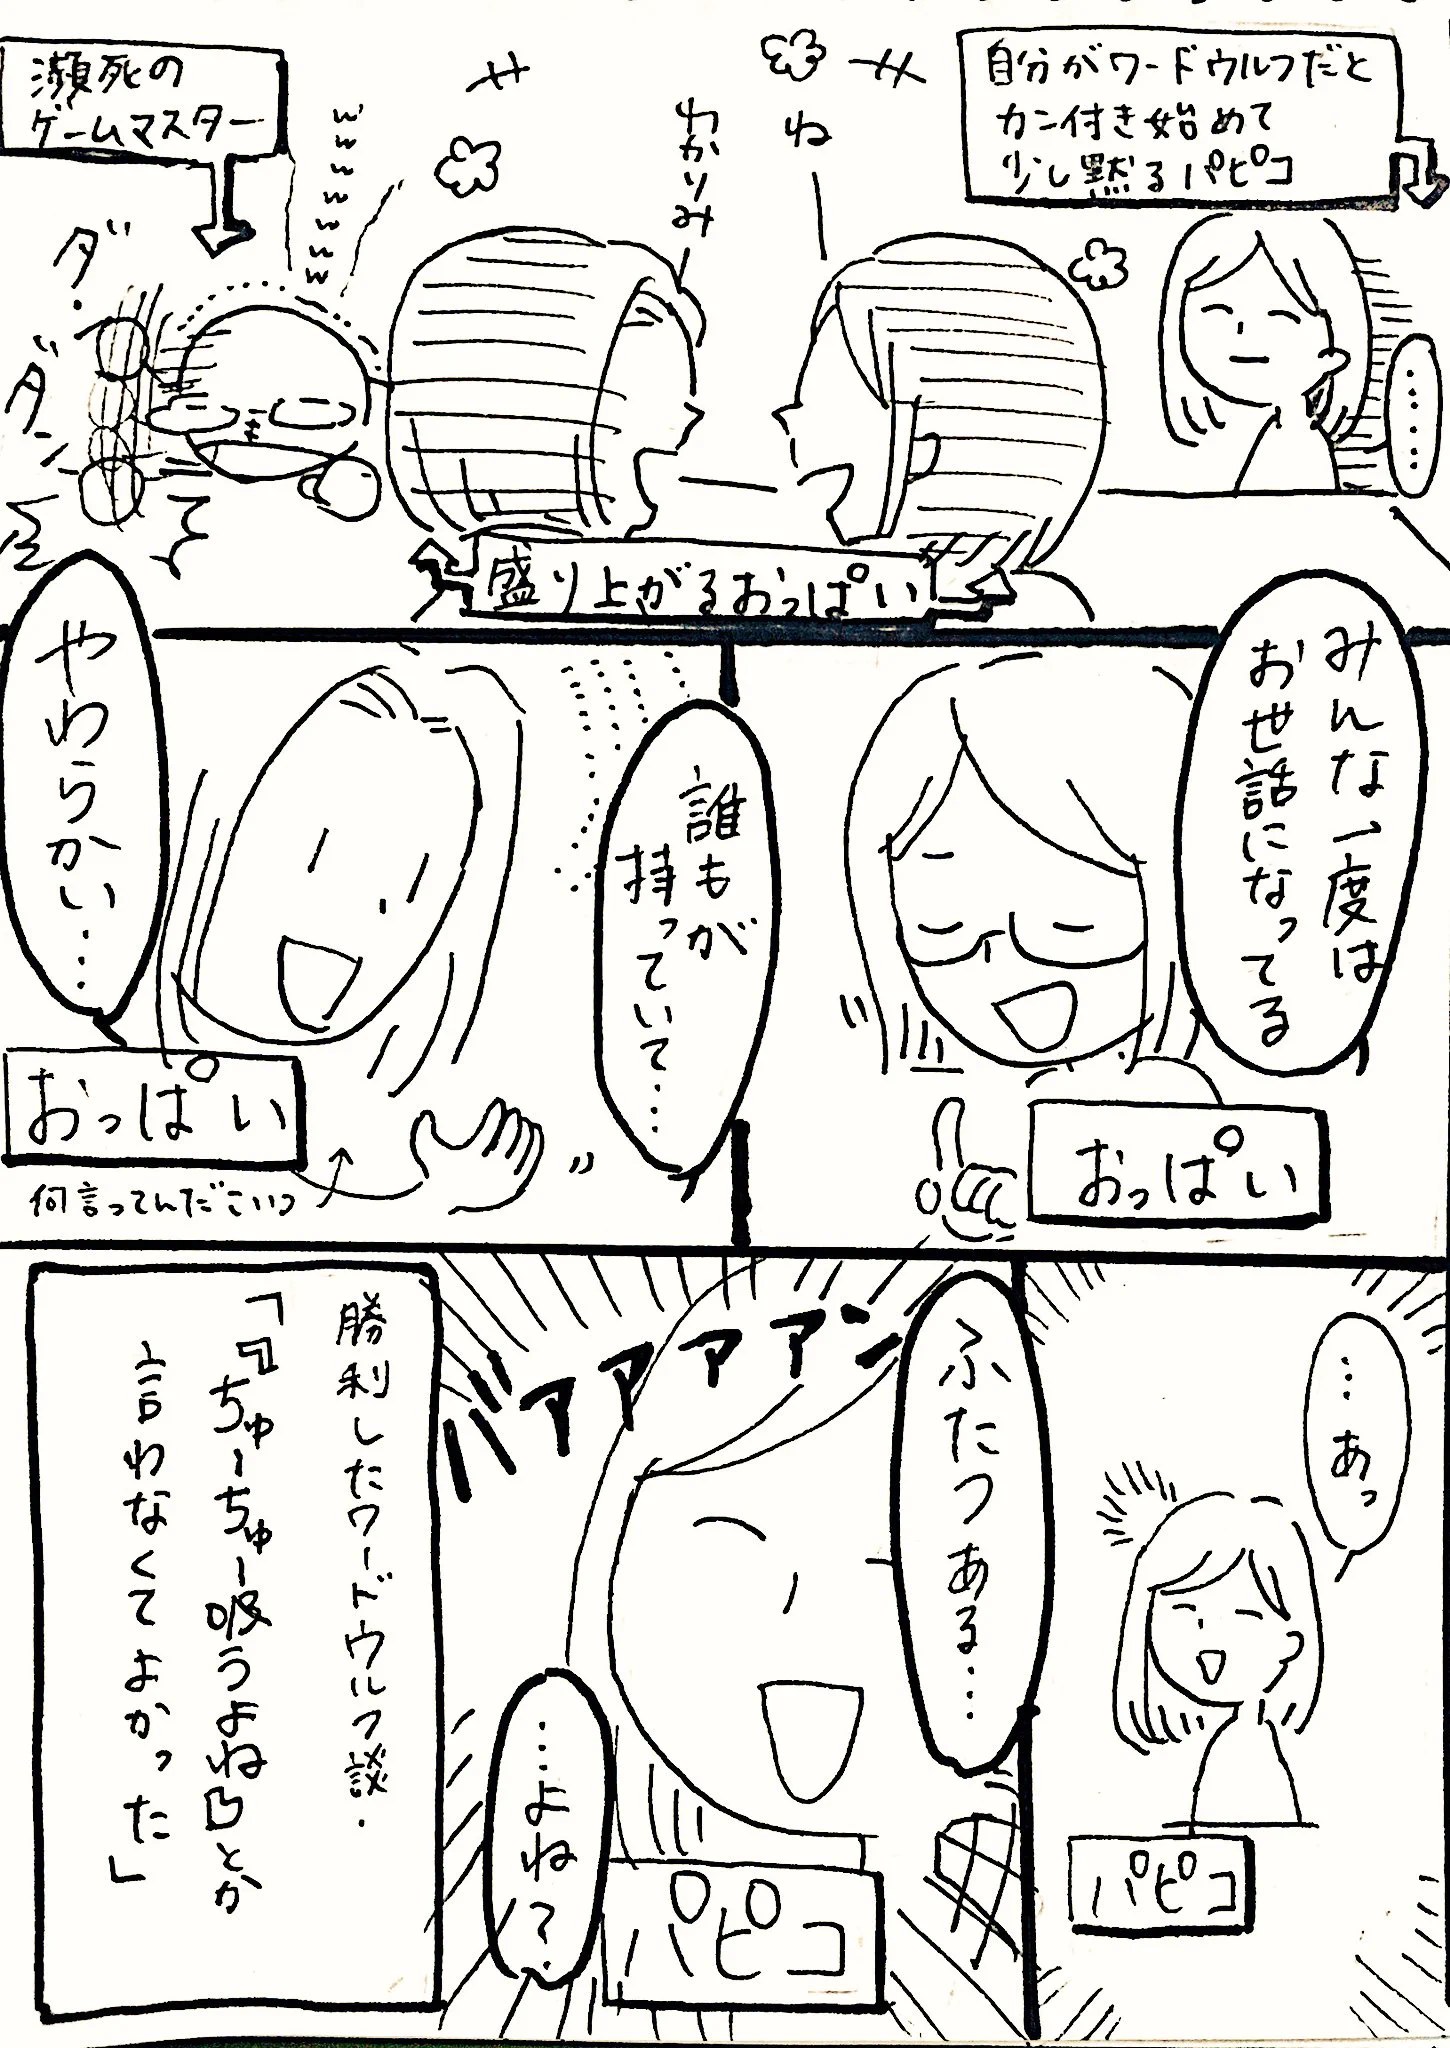 自分がワードウルフだと
カン付き始めて
少し黙るパピコ
……
ね
わかりみ
wwwwwww
瀕死の
ゲームマスター
ダンダン
盛り上がるおっぱい
みんな一度は
お世話になってる
おっぱい
誰もが
持っていて…
やわらかい……
おっぱい
何言ってんだこいつ
…あっ
パピコ
ふたつある…
バアアアアン
…よね?
パピコ
勝利したワードウルフ談.
「『ちゅーちゅー吸うよね』とか
言わなくてよかった」